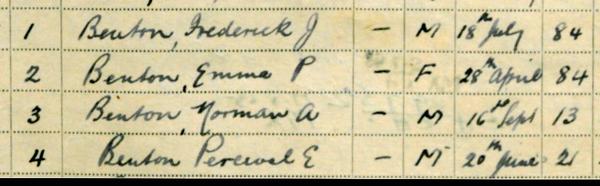 1 Benton, Frederick J – M 18th July 84
2 Benton, Emma P – F 28th April 84
3 Benton, Norman A – M 16th Sept 13
4 Benton Percival E – M 20th June 21